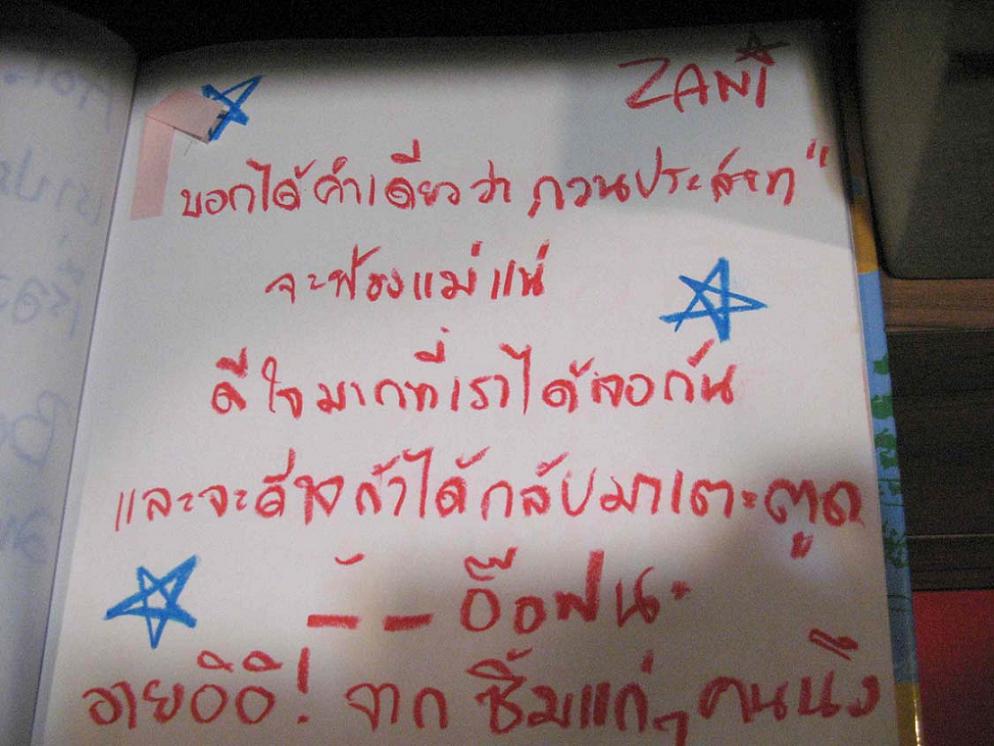 ZANi
บอกได้คำเดียวว่า กวนประสาท"
จะฟ้องแม่แน่
ดีใจมากที่เราได้เจอกัน
และจะดีใจถ้าได้กลับมาเตะตูด
อายอิอิ! จาก ซิ้มแก่ๆ คนนึง